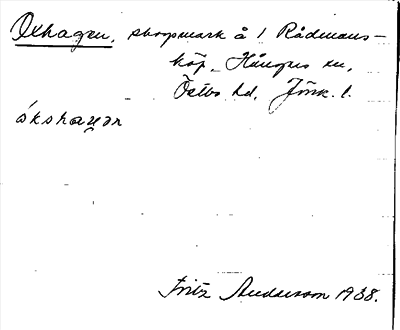 Oxhagen, skogsmark å 1 Rådmans-
köp, Hångers sn,
Östbo hd, Jönk. l.
ókshaɡən
Fritz Andersson 1938.